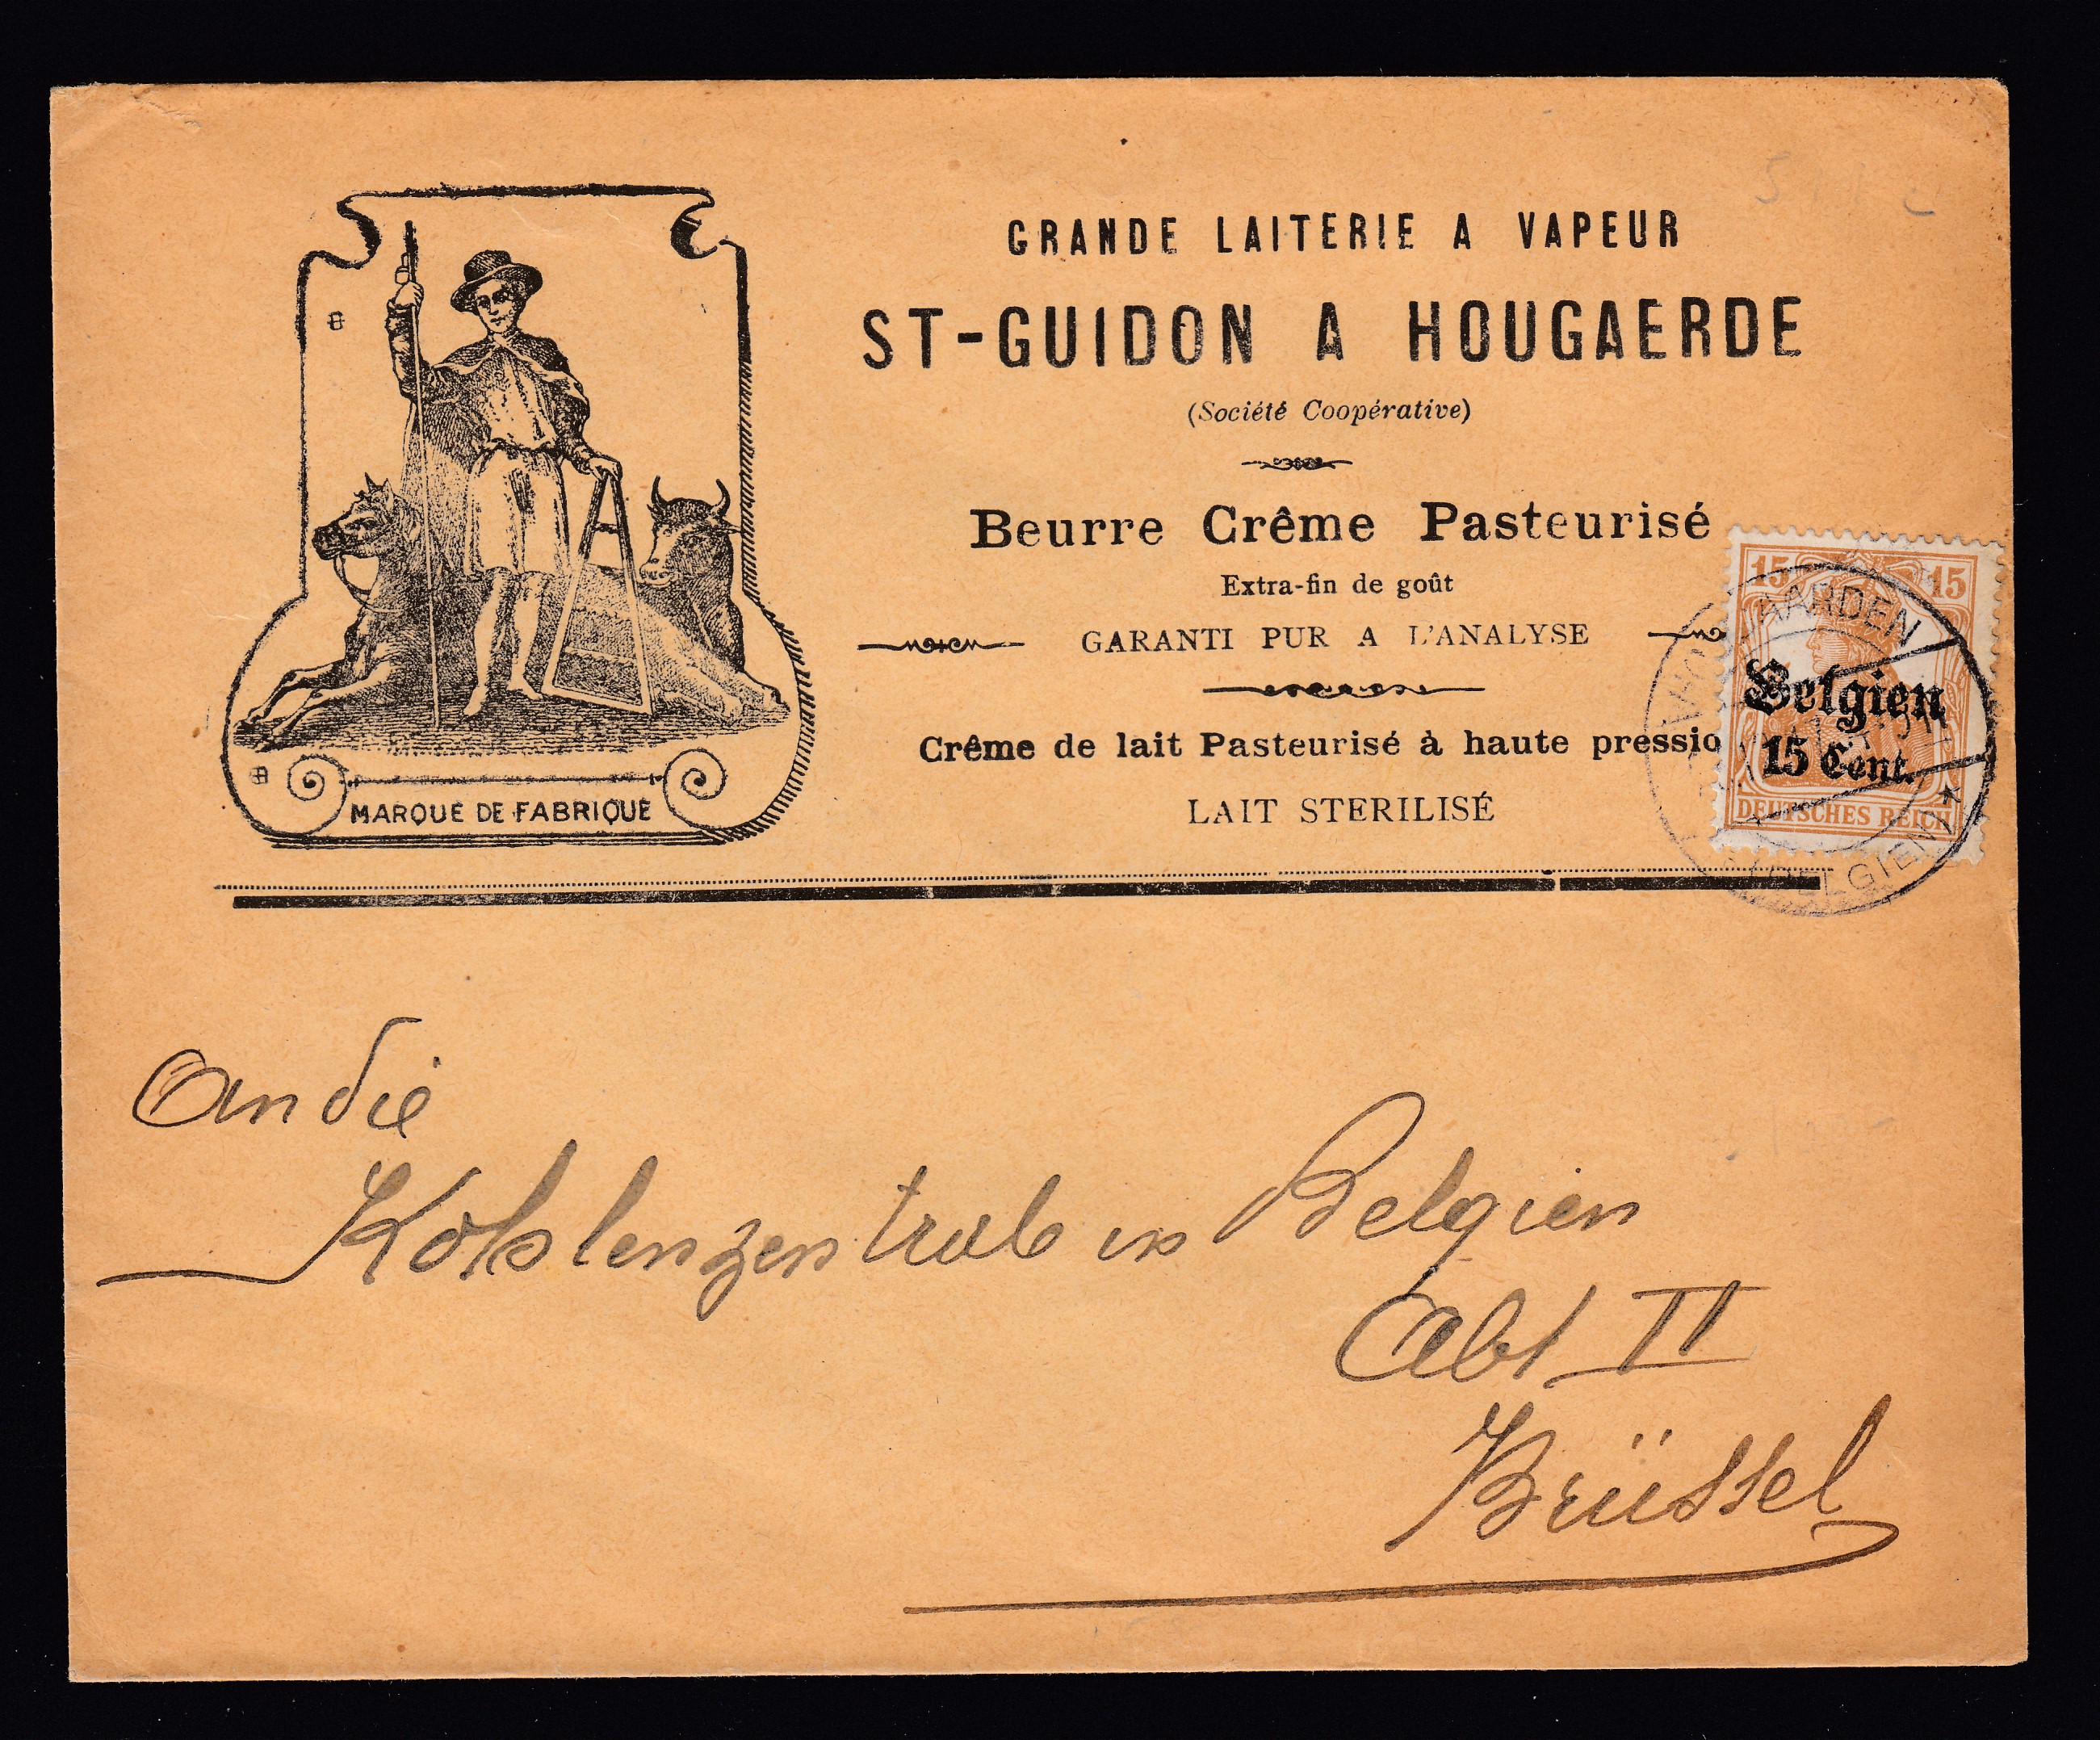 GRANDE LAITERIE A VAPEUR
ST-GUIDON A HOUGAERDE
(Société Coopérative)
Beurre Crême Pasteurisé
Extra-fin de goût
GARANTI PUR A L'ANALYSE
Crême de lait Pasteurisé à haute pressio
LAIT STERILISÉ
MARQUE DE FABRIQUE
15 15
Belgien
15 Cent.
DEUTSCHES REICH
BELGIEN
An die
Kohlenzentrale in Belgien
Abt II
Brüssel